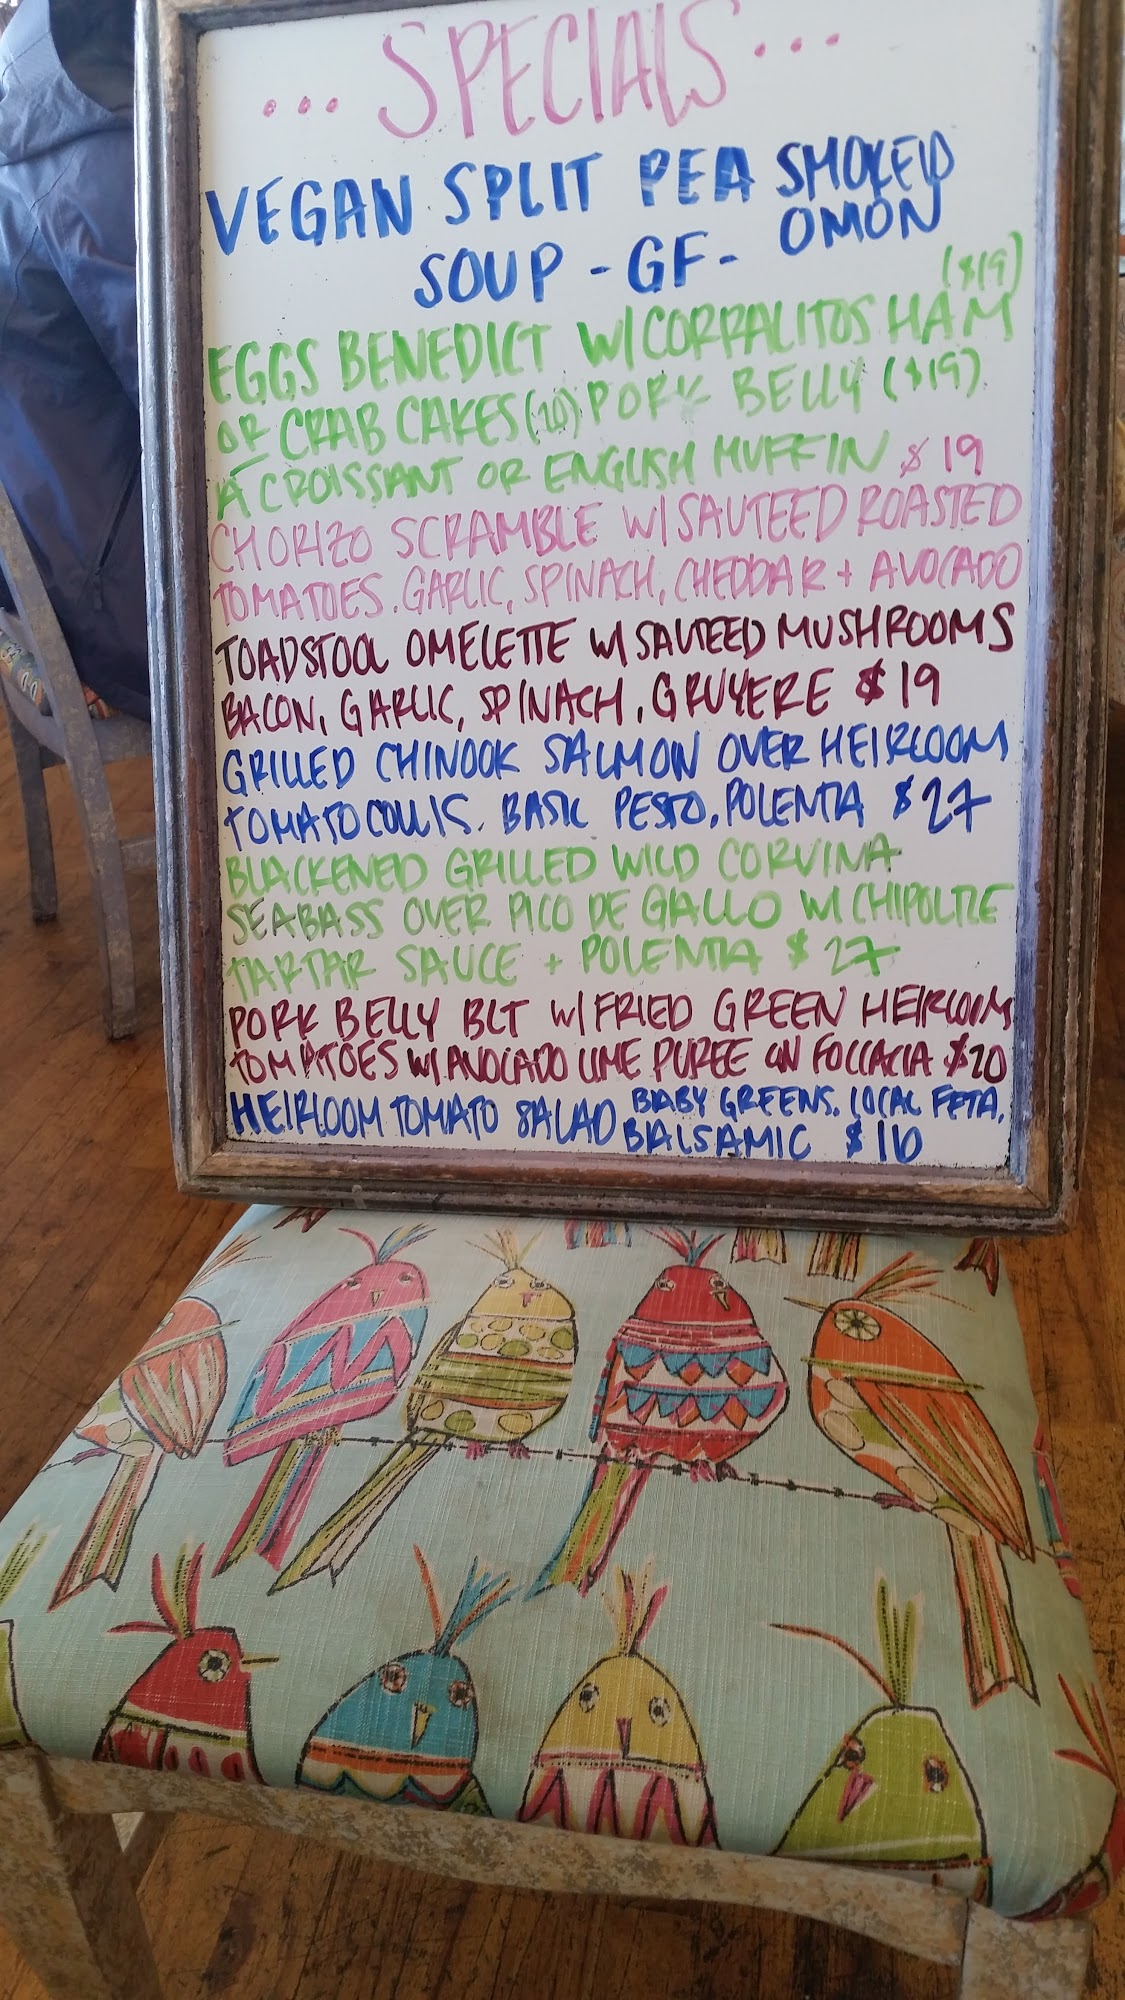 ... SPECIALS ...
VEGAN SPLIT PEA SMOKED
OMON
SOUP - GF -
($19)
EGGS BENEDICT W/ CORRALITOS HAM
OR CRAB CAKES (20) PORK BELLY ($19)
A CROISSANT OR ENGLISH MUFFIN $19
CHORIZO SCRAMBLE W/ SAUTEED ROASTED
TOMATOES. GARLIC, SPINACH, CHEDDAR + AVOCADO
TOADSTOOL OMELETTE W/ SAUTEED MUSHROOMS
BACON, GARLIC, SPINACH, GRUYERE $19
GRILLED CHINOOK SALMON OVER HEIRLOOM
TOMATO COULIS. BASIL PESTO, POLENTA $27
BLACKENED GRILLED WILD CORVINA
SEABASS OVER PICO DE GALLO W/ CHIPOLTLE
TARTAR SAUCE + POLENTA $27
PORK BELLY BLT W/ FRIED GREEN HEIRLOOM
TOMATOES W/ AVOCADO LIME PUREE ON FOCCACIA $20
HEIRLOOM TOMATO SALAD BABY GREENS, LOCAL FETA,
BALSAMIC $16